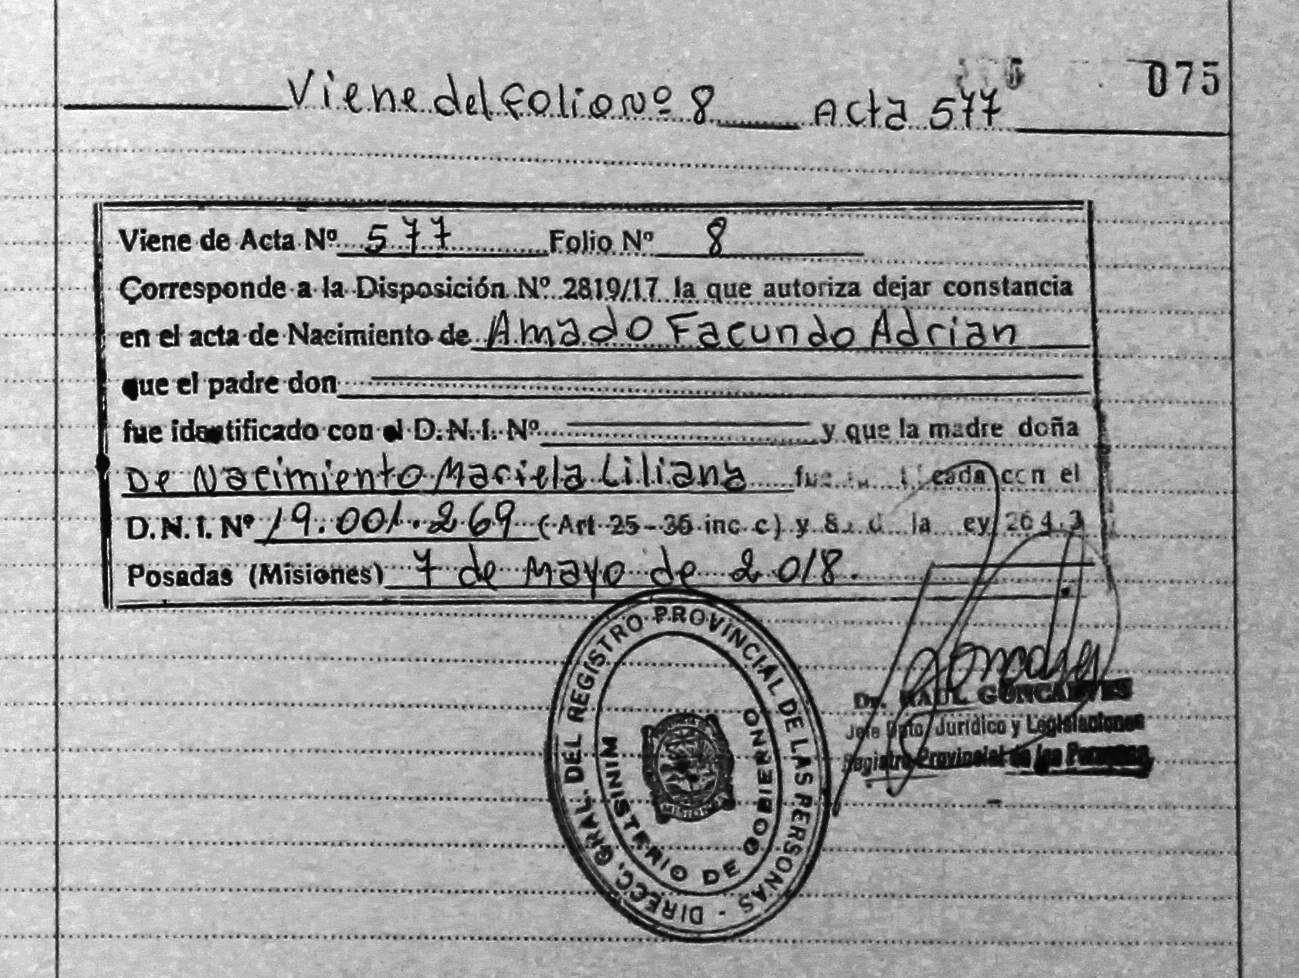 075
Viene del folio Nº 8 Acta 577
Viene de Acta Nº 577 Folio Nº 8
Corresponde a la Disposición Nº 2819/17 la que autoriza dejar constancia
en el acta de Nacimiento de Amado Facundo Adrian
que el padre don
fue identificado con el D.N.I. Nº y que la madre doña
De Nacimiento Mariela Liliana con el
D.N.I. Nº 19.001.269 (Art 25-36 inc. c) y la
Posadas (Misiones) 7 de Mayo de 2018.
DIRECC. GRAL. DEL REGISTRO PROVINCIAL DE LAS PERSONAS -
MINISTERIO DE GOBIERNO
MISIONES
Dr. RAUL GONCALVES
Jefe Dpto. Jurídico y Legislaciones
Registro Provincial de las Personas